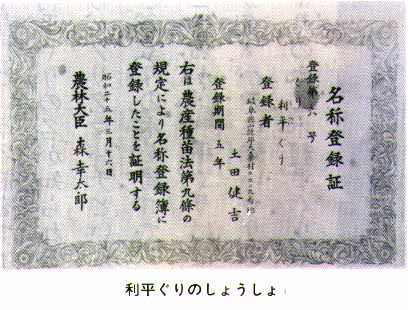 名称登録証
登録第六号
くり
利平ぐり
登録者
土田健吉
登録期間 五年
右は農産種苗法第九條の
規定により名称登録簿に
登録したことを証明する
昭和二十五年三月十六日
農林大臣 森幸太郎
利平ぐりのしょうしょ